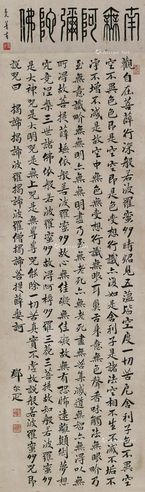 南無阿彌陀佛
觀自在菩薩行深般若波羅蜜多時照見五蘊皆空度一切苦厄舍利子色不異空
空不異色色即是空空即是色受想行識亦復如是舍利子是諸法空相不生不滅不垢不
淨不增不減是故空中無色無受想行識無眼耳鼻舌身意無色聲香味觸法無眼界乃
至無意識界無無明亦無無明盡乃至無老死亦無老死盡無苦集滅道無智亦無得以無所
得故菩提薩埵依般若波羅蜜多故心無罣礙無罣礙故無有恐怖遠離顛倒夢想
究竟涅槃三世諸佛依般若波羅蜜多故得阿耨多羅三藐三菩提故知般若波羅蜜多
是大神咒是大明咒是無上咒是無等等咒能除一切苦真實不虛故說般若波羅蜜多咒即
說咒曰 揭諦揭諦波羅揭諦波羅僧揭諦菩提薩婆訶